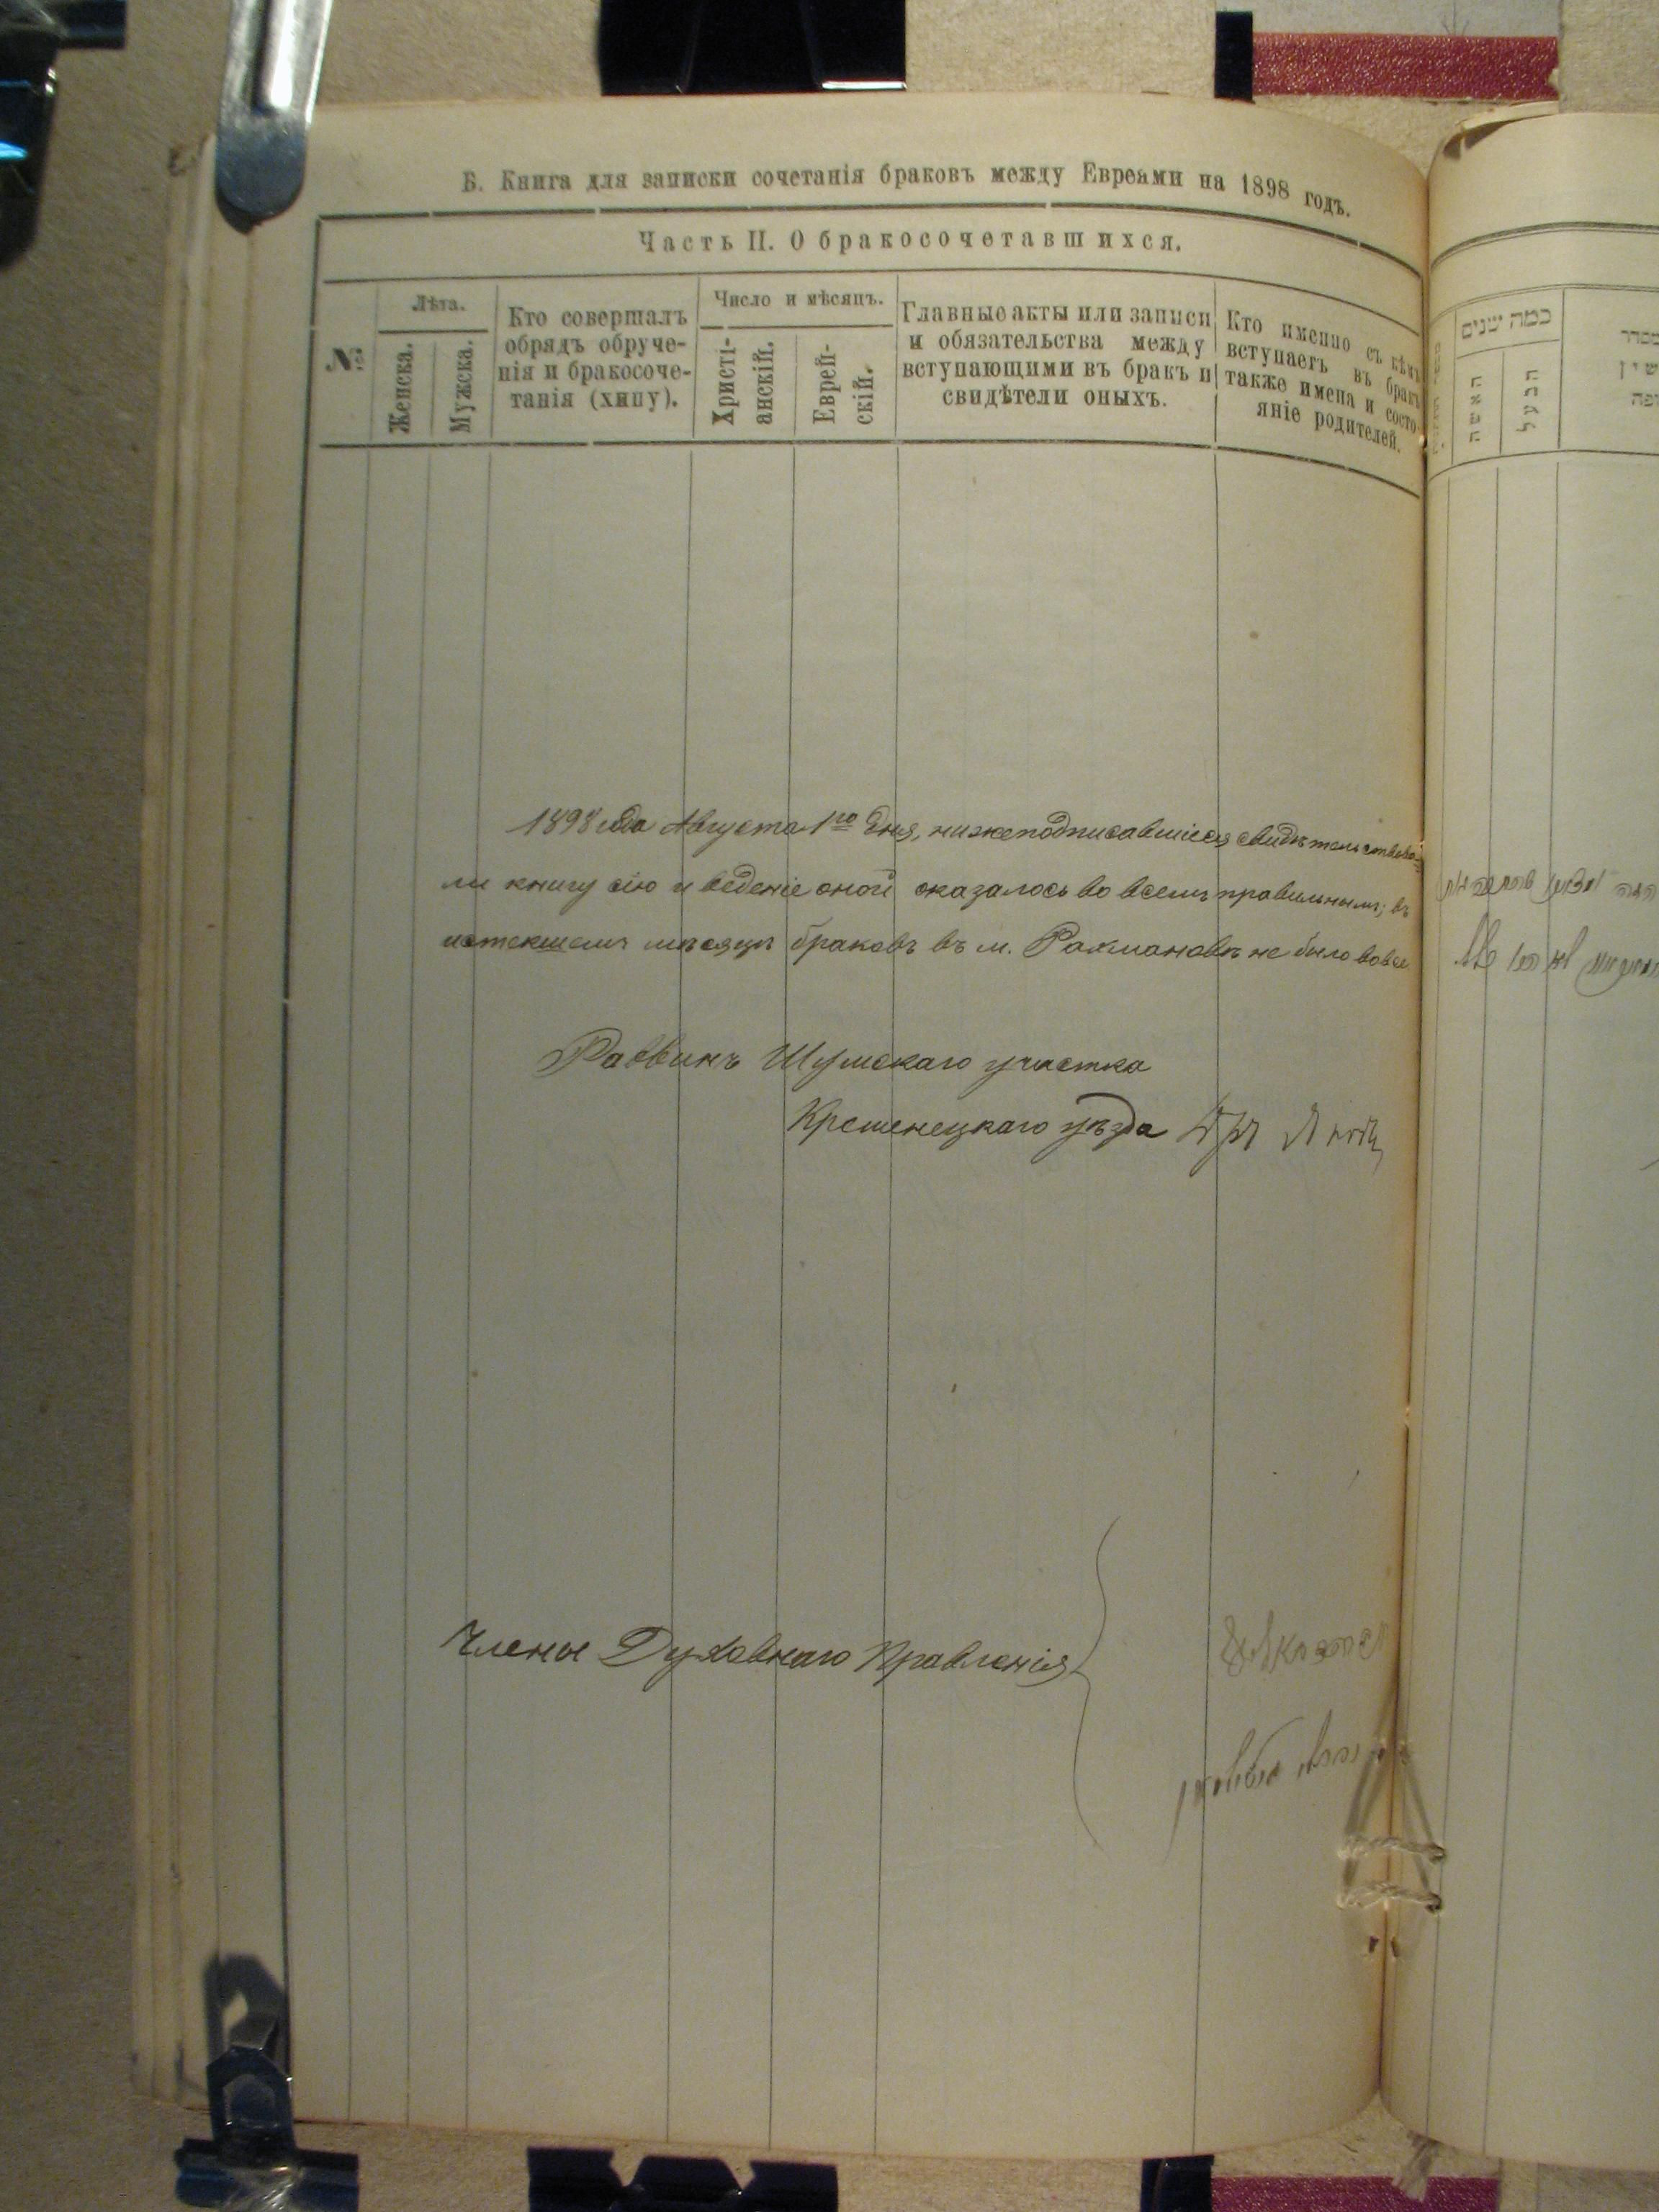 Б. Книга для записки сочетанія браковъ между Евреями на 1898 годъ.
Часть II. О бракосочетавшихся.
№
Лѣта.
Женска.
Мужска.
Кто совершалъ
обрядъ обруче-
нія и бракосоче-
танія (хипу).
Число и мѣсяцъ.
Христі-
анскій.
Еврей-
скій.
Главные акты или записи
и обязательства между
вступающими въ бракъ и
свидѣтели оныхъ.
Кто именно съ кѣмъ
вступаетъ въ бракъ
также имена и состо-
яніе родителей.
1898 года Августа 1го дня, нижеподписавшіеся свидѣтельствова-
ли книгу сію и веденіе оной оказалось во всемъ правильнымъ; въ
истекшемъ мѣсяцѣ браковъ въ м. Рахмановкѣ не было вовсе
Раввинъ Шумскаго участка
Кременецкаго уѣзда
Члены Духовнаго Правленія
כמה שנים
האשה
הבעל